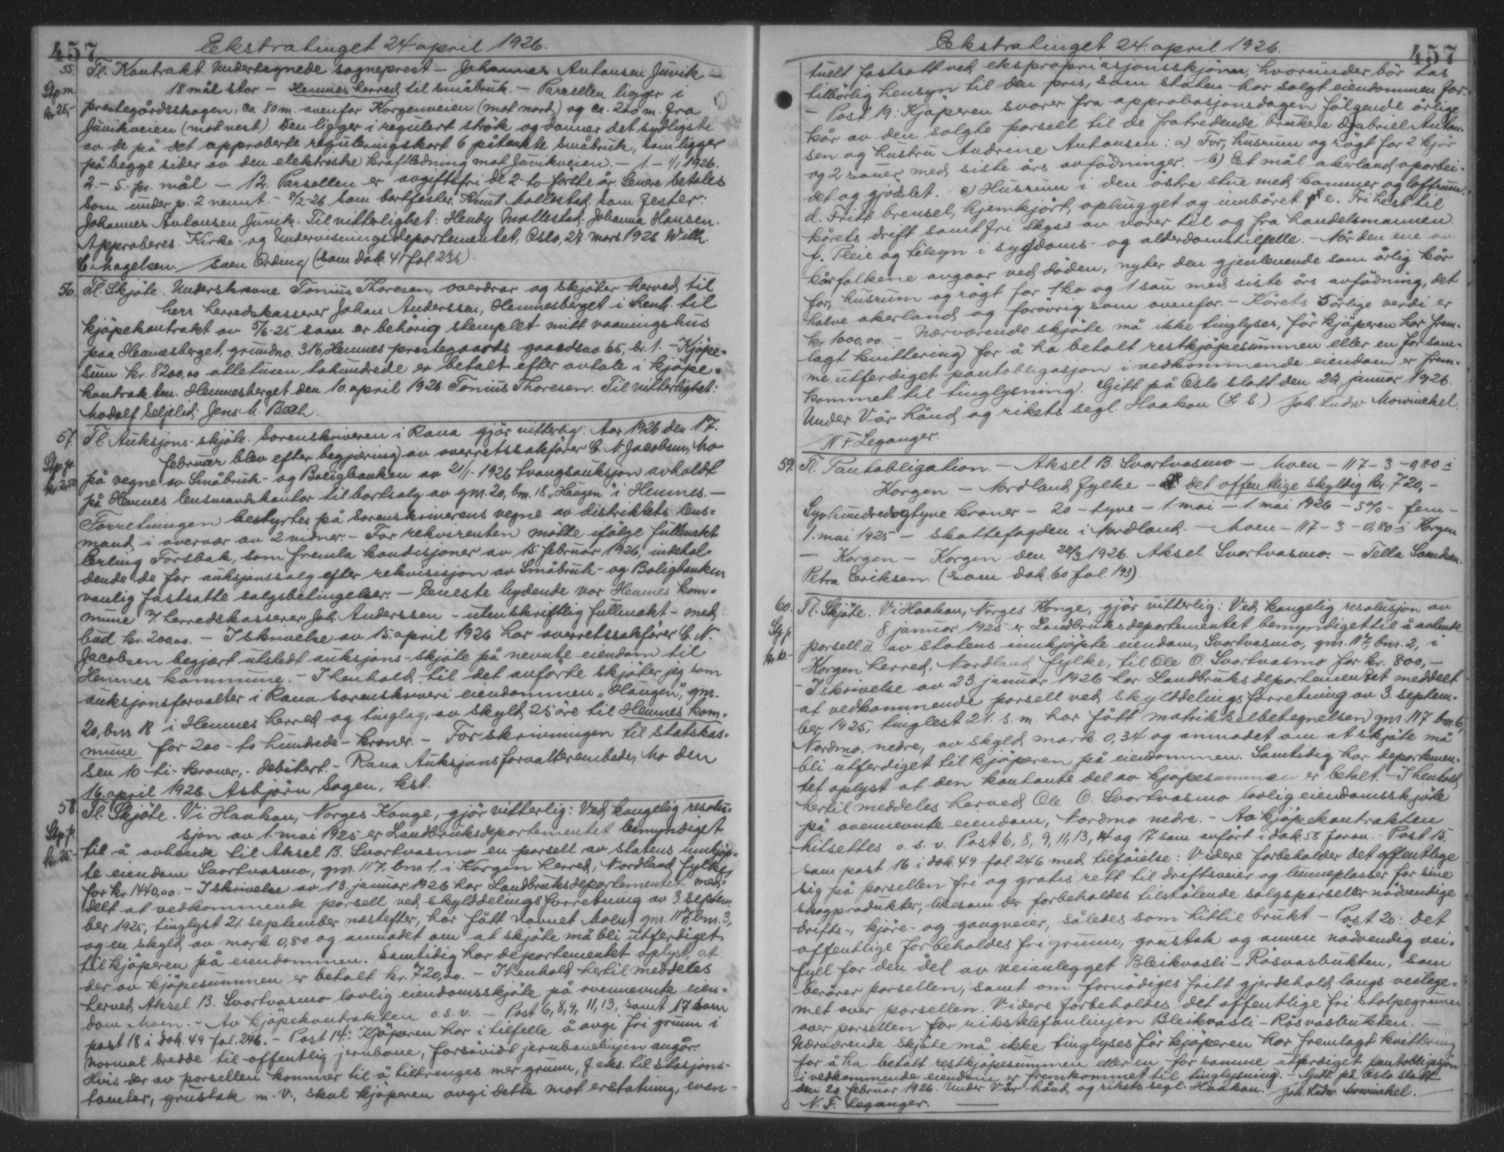 457
Ekstratinget 24 april 1926.
55. Tl. Kontrakt. Undertegnede sogneprest - Johannes Antonsen Juvik -
Stp. m. 18 mål stor - Hemnes herred, til småbruk. - Parsellen ligger i
kr. 25,- prestegårdsskogen, ca. 80 m. ovenfor Korgenveien (mot nord) og ca. 200 m. fra
Juvikveien (mot vest). Den ligger i regulert strøk og danner det sydligste
av de på det approberte reguleringskart 6 pitænkte småbruk, som ligger
på begge sider av den elektriske kraftledning mot Juvikveien. - 1. - 1/1 1926.
2. - 5. pr. mål - 12. Parsellen er avgiftsfri de 2 - to første år. Senere betales
som under p. 2 nevnt. - 2/2-26 Som bortfester: Knut Mollestad, som fester:
Johannes Antonsen Juvik. Til vitterlighet: Hendy Mollestad. Johanna Hansen.
Approberes. Kirke- og Undervisningsdepartementet, Oslo, 27 mars 1926. Wilh.
C. Magelsen / Søren Ording (som dok. 41 fol 236).
56. Tl. Skjøte. Underskrevne Tomius Thoresen, overdrar og skjøter herved til
herr herredskasserer Johan Anderssen, Hemnesberget i henh. til
kjøpekontrakt av 5/6-25 som er behørig stemplet mitt vaaningshus
paa Hemnesberget, grundno. 316, Hemnes prestegaards gaardsno 65, br. 1. - Kjøpe-
sum kr. 8200,00 ottetusen tohundrede er betalt efter avtale i kjøpe-
kontrakten. Hemnesberget den 10. april 1926. Tomius Thoresen. Til vitterlighet:
Modolf Seljelid. Jens A. Bech.
57. Tl. Auksjons-skjøte. Sorenskriveren i Rana gjør vitterlig: Aar 1926 den 17.
Stp. p. februar blev efter begjæring av overretssakfører C. N. Jacobsen, Mo
kr. 2,50 på vegne av Småbruk- og Boligbanken av 21/1. 1926 tvangsauksjon avholdt
på Hemnes lensmandskontor til bortsalg av gnr. 20, bnr. 18, Haugen i Hemnes. -
Forretningen bestyrtes på Sorenskriverens vegne av distriktets lens-
mand i overvær av 2 vidner. - For rekvirenten møtte ifølge fullmakt
Erling Forsbak, som fremla konditioner av 15. februar 1926, innehol-
dende de for auksjonssalg efter rekvisisjon av Småbruk- og Boligbanken
vanlig fastsatte salgsbetingelser. - Eneste bydende var Hemnes kom-
mune v/ herredskasserer Joh. Anderssen - uten skriftlig fullmakt - med
bud kr. 200,00. - I skrivelse av 15. april 1926 har overretssakfører C. N.
Jacobsen begjært utstedt auksjons-skjøte på nevnte eiendom til
Hemnes kommune. - I henhold til det anførte skjøter jeg som
auksjonsforvalter i Rana sorenskriveri eiendommen "Haugen", gnr.
20, bnr. 18 i Hemnes herred og tinglag, av skyld 25 øre til Hemnes kom-
mune for 200 - to hundrede - kroner. - Forskrivningen til statskas-
sen 10 - ti - kroner, - debitert. - Rana Auksjonsforvalterembede, Mo den
16 april 1926. Asbjørn Sagen, kst.
58. Tl. Skjøte. Vi Haakon, Norges Konge, gjør vitterlig: Ved kongelig resolu-
Stp. p. sjon av 1. mai 1925 er Landbruksdepartementet bemyndiget
kr. 25,- til å avhende til Aksel B. Svartvasmo en parsell av statens innkjøp-
te eiendom Svartvasmo, gnr. 117, bnr. 1. i Korgen herred, Nordland fylke,
for kr. 1440,00. - I skrivelse av 13. januar 1926 har Landbruksdepartementet med-
delt at vedkommende parsell ved skylddelingsforretning av 3. septem-
ber 1925, tinglyst 21 september næstefter, har fått navnet Moen, gnr. 117, bnr. 3,
og en skyld av mark 0,80 og anmodet om at skjøte må bli utferdiget
til kjøperen på eiendommen. Samtidig har departementet oplyst, at
der av kjøpesummen er betalt kr. 720,00. - I henhold hertil meddeles
herved Aksel B. Svartvasmo lovlig eiendomsskjøte på ovennevnte eien-
dom Moen. - Av kjøpekontrakten o.s.v. - Post 6, 8, 9, 11, 13, samt 17 som
post 18 i dok. 49 fol. 246. - Post 14: Kjøperen har i tilfelle å avgi fri grunn i
normal bredde til offentlig jernbane, forsåvidt jernbanelinjen angår.
Hvis der av parsellen kommer til å tiltrenges mer grunn, f. eks. til stasjons-
tomter, grustak m.v., skal kjøperen avgi dette mot erstatning, even-
457
Ekstratinget 24 april 1926.
tuelt fastsatt ved ekspropriasjonsskjønn, hvorunder bør tas
tilbørlig hensyn til den pris, som staten har solgt eiendommen for.
- Post 19. Kjøperen svarer fra approbasjonsdagen følgende årlige
kår av den solgte parsell til de fratredende brukere Gabriel Anton-
sen og hustru Andrine Antonsen: a) For, husrum og røgt for 2 kjør
og 2 sauer med siste års avfødninger. - b) Et mål akerland, oparbei-
det og gjødslet. c) Husrum i den østre stue med kammer og loftsrum.
d. Fritt brensel, hjemkjørt, ophugget og innbåret. e. Fri hest til
kårets drift samt fri skyss av varer til og fra handelsmannen
f. Pleie og tilsyn i sygdoms- og alderdomstilfelle. - Når den ene av
kårfolkene avgaar ved døden, nyter den gjenlevende som årlig kår
for, husrum og røgt for 1 ko og 1 sau med siste års avfødning, det
halve akerland og forøvrig som ovenfor. - Kårets 5 årlige verdi er
kr. 1000,00 - Nærværende skjøte må ikke tinglyses, før kjøperen har frem-
lagt kvittering for å ha betalt restkjøpesummen eller en for sam-
me utferdiget pantobligasjon i vedkommende eiendom er frem-
kommet til tinglysning. Gitt på Oslo slott den 22. januar 1926.
Under Vår hånd og rikets segl. Haakon (L. S.) Joh. Ludw. Mowinckel.
N. F. Leganger.
59. Tl. Pantobligation - Aksel B. Svartvasmo - Moen - 117 - 3 - 0,80 i
Korgen - Nordland fylke - det offentlige skyldig kr. 720,-
Syvhundredeogtyve kroner - 20 - tyve - 1 mai - 1 mai 1926 - 5% - fem -
1. mai 1925 - skattefogden i Nordland - Moen - 117 - 3 - 0,80 i Korgen
- Korgen - Korgen den 24/3 1926. Aksel Svartvasmo. - Tella Samdsen.
Petra Eriksen. (som dok. 60 fol 193)
60. Tl. Skjøte. Vi Haakon, Norges Konge, gjør vitterlig: Ved kongelig resolusjon av
Stp. p. 8 januar 1925 er Landbruksdepartementet bemyndiget til å avhende
kr. 10- parsell a av statens innkjøpte eiendom, Svartvasmo, gnr. 117, bnr. 2, i
Korgen herred, Nordland fylke, til Ole O. Svartvasmo for kr. 800,-
- I skrivelse av 23 januar 1926 har Landbruksdepartementet meddelt
at vedkommende parsell ved skylddelingsforretning av 3. septem-
ber 1925, tinglest 21. s. m. har fått matrikkelbetegnelsen gnr. 117 bnr. 6,
Nordmo, nedre, av skyld mark 0,34 og anmodet om at skjøte må
bli utferdiget til kjøperen på eiendommen. Samtidig har departemen-
tet oplyst at den kontante del av kjøpesummen er betalt. - I henhold
hertil meddeles herved Ole O. Svartvasmo lovlig eiendomsskjøte
på ovennevnte eiendom, Nordmo nedre. - Av kjøpekontrakten
hitsettes o.s.v. Post 6, 8, 9, 11, 13, 14 og 17 som anført i dok. 58 foran. Post 15
som post 16 i dok. 49 fol 246 med tilføielse: Videre forbeholder det offentlige
sig på parsellen fri og gratis rett til driftsveier og tømmerplasser for sine
skogprodukter, likesom der forbeholdes tilstøtende salgsparseller nødvendige
drifts-, kjøre- og gangveier, således som hittil brukt. - Post 20: Det
offentlige forbeholdes fri grunn, grustak og annen nødvendig vei-
fyll for den del av veianlegget Bleikvasli - Røsvasbukten, som
berører parsellen, samt om fornødiges fritt gjerdehold langs veilege-
met over parsellen. Videre forbeholdes det offentlige fri stolpegrunn
over parsellen for rikstelefonlinjen Bleikvasli - Røsvasbukten. -
Nærværende skjøte må ikke tinglyses før kjøperen har fremlagt kvittering
for å ha betalt restkjøpesummen eller en for samme utferdiget pantobligasjon
i vedkommende eiendom er fremkommet til tinglysning. - Gitt på Oslo slott
den 20 februar 1926. Under Vår hånd og rikets segl. Haakon. Joh. Ludw. Mowinckel.
N. F. Leganger.